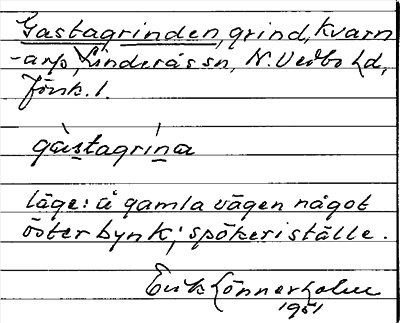 Gastagrinden, grind, Kvarn
-arp, Linderås sn, N. Vedbo hd,
Jönk. l.
gàstagrína
läge: å gamla vägen något
öster byn k; spökeriställe.
Erik Lönnerholm
1951